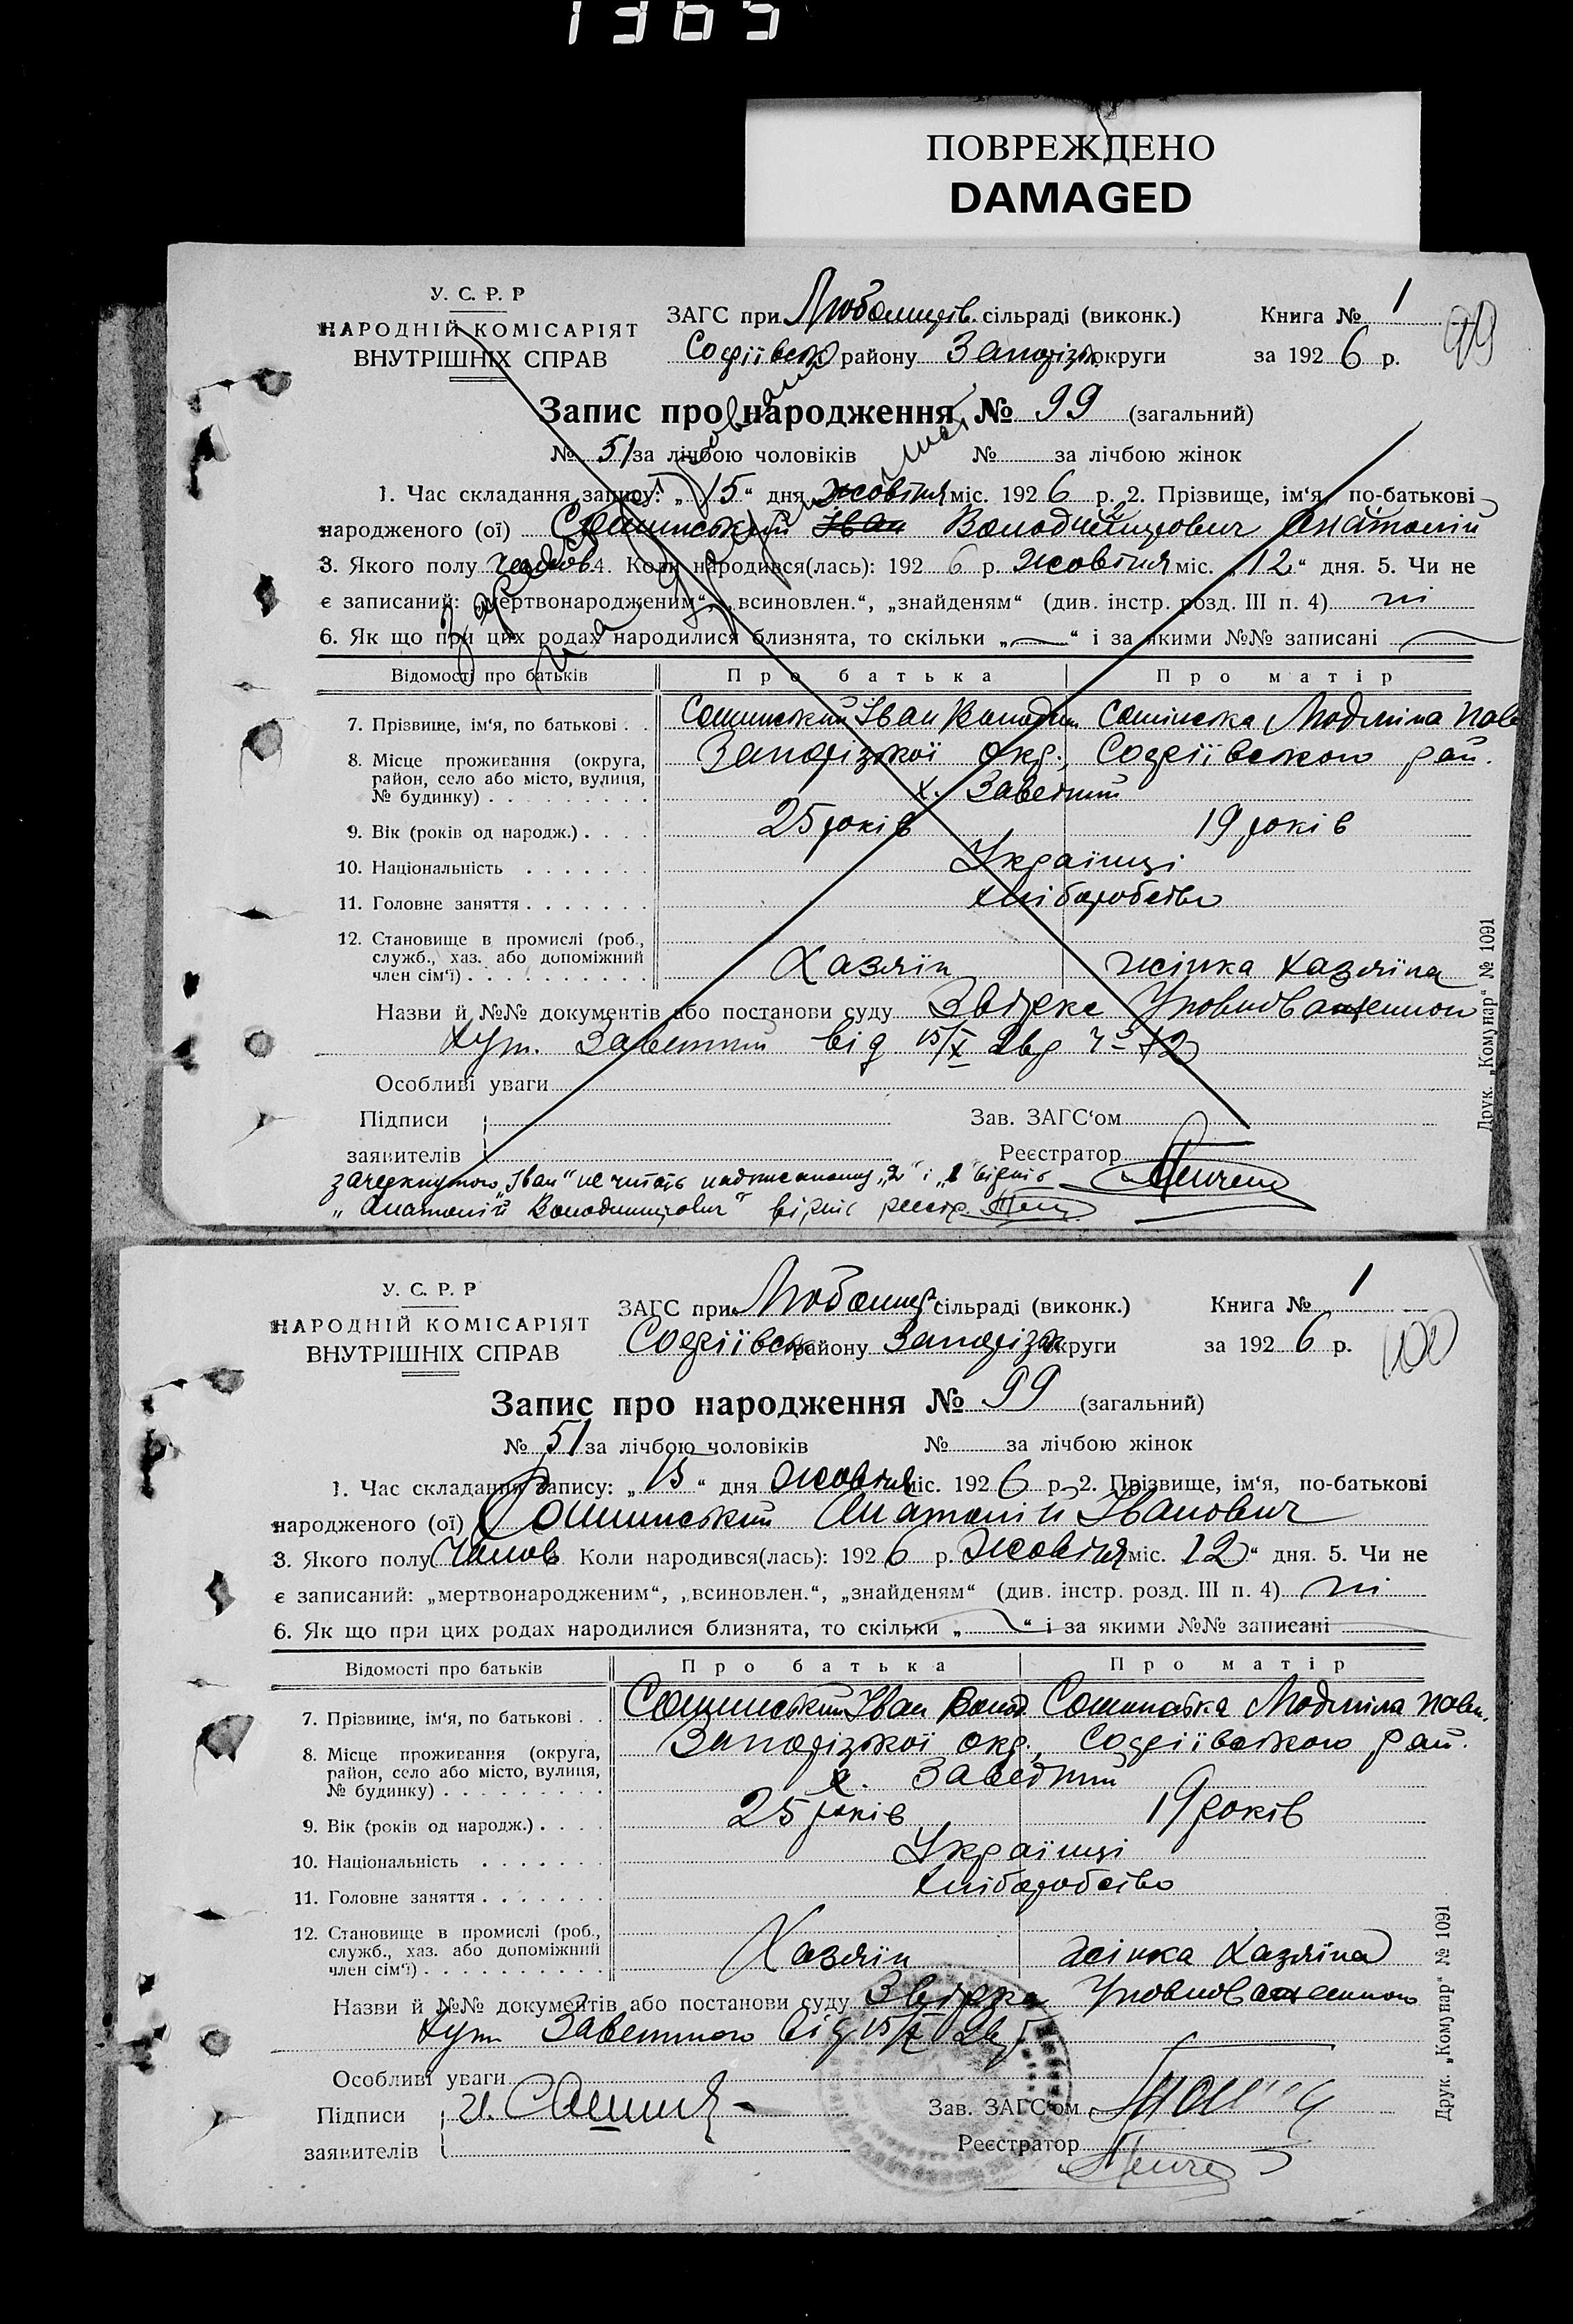 1365
ПОВРЕЖДЕНО
DAMAGED
У. С. Р. Р
НАРОДНІЙ КОМІСАРІЯТ
ВНУТРІШНІХ СПРАВ
ЗАГС при сільраді (виконк.)
Софіївськ району Запоріз. округи
Книга № 1
за 192 6 р.
99
Запис про народження № 99 (загальний)
№ 51 за лічбою чоловіків № за лічбою жінок
1. Час складання запису: „ 15 “ дня жовтня міс. 192 6 р. 2. Прізвище, ім‘я, по-батькові
народженого (ої) Сошинський Іван Володимирович Анатолій
3. Якого полу чолов. 4. Коли народився(лась): 192 6 р. жовтня міс. „ 12 “ дня. 5. Чи не
є записаний: „мертвонародженим“, „всиновлен.“, „знайденям“ (див. інстр. розд. III п. 4) ні
6. Як що при цих родах народилися близнята, то скільки „ “ і за якими №№ записані
Відомості про батьків Про батька Про матір
7. Прізвище, ім‘я, по батькові . . Сошинський Іван Володим Сошинська Людмила Павл
8. Місце проживання (округа,
район, село або місто, вулиця,
№ будинку) . . . . . . . . .
Запорізької окр., Софіївського рай.
х. Заветний
9. Вік (років од народж.) . . . . 25 років 19 років
10. Національність . . . . . . . Українці
11. Головне заняття . . . . . . . хліборобство
12. Становище в промислі (роб.,
служб., хаз. або допоміжний
член сім‘ї) . . . . . . . . . .
Хазяїн жінка хазяїна
Назви й №№ документів або постанови суду Звірка Уповноваженного
хут. Заветний від 15/X 26 р ч 72
Особливі уваги
Підписи
заявителів
Зав. ЗАГС‘ом
Реєстратор
зачеркнутого „Іван“ не читать надписаному „2“ і „1“ вірить
„Анатолій Володимирович“ вірить реєстр.
Друк. „Комунар“ № 1091
У. С. Р. Р
НАРОДНІЙ КОМІСАРІЯТ
ВНУТРІШНІХ СПРАВ
ЗАГС при сільраді (виконк.)
Софіївськ району Запорізк округи
Книга № 1
за 192 6 р.
100
Запис про народження № 99 (загальний)
№ 51 за лічбою чоловіків № за лічбою жінок
1. Час складання запису: „ 15 “ дня жовтня міс. 192 6 р. 2. Прізвище, ім‘я, по-батькові
народженого (ої) Сошинський Анатолій Іванович
3. Якого полу чолов Коли народився(лась): 192 6 р. жовтня міс. 12 “ дня. 5. Чи не
є записаний: „мертвонародженим“, „всиновлен.“, „знайденям“ (див. інстр. розд. III п. 4) ні
6. Як що при цих родах народилися близнята, то скільки „ “ і за якими №№ записані
Відомості про батьків Про батька Про матір
7. Прізвище, ім‘я, по батькові . . Сошинський Іван Волод Сошинська Людмила Павл.
8. Місце проживання (округа,
район, село або місто, вулиця,
№ будинку) . . . . . . . . .
Запорізької окр., Софіївського рай.
х. Заветний
9. Вік (років од народж.) . . . . 25 років 19 років
10. Національність . . . . . . . Українці
11. Головне заняття . . . . . . . хліборобство
12. Становище в промислі (роб.,
служб., хаз. або допоміжний
член сім‘ї) . . . . . . . . . .
Хазяїн жінка хазяїна
Назви й №№ документів або постанови суду Звірка Уповноваженного
хут Заветного від 15/X 26 р
Особливі уваги
Підписи
заявителів
Зав. ЗАГС‘ом
Реєстратор
Друк. „Комунар“ № 1091